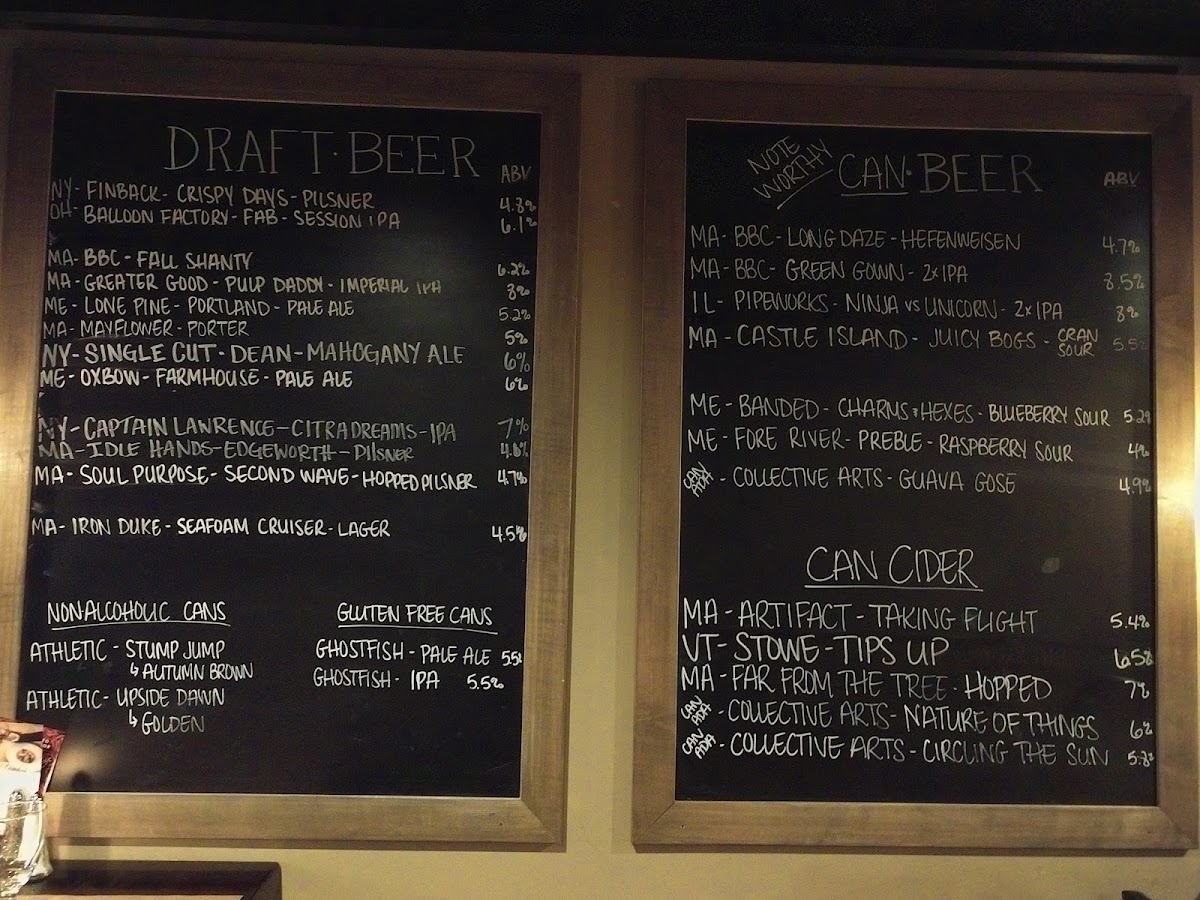 DRAFT·BEER
ABV
NY- FINBACK - CRISPY DAYS - PILSNER 4.8%
OH- BALLOON FACTORY - FAB - SESSION IPA 6.1%
MA- BBC - FALL SHANTY 6.2%
MA- GREATER GOOD - PULP DADDY - IMPERIAL IPA 8%
ME- LONE PINE - PORTLAND - PALE ALE 5.2%
MA- MAYFLOWER - PORTER 5%
NY- SINGLE CUT - DEAN - MAHOGANY ALE 6%
ME- OXBOW - FARMHOUSE - PALE ALE 6%
NY- CAPTAIN LAWRENCE - CITRADREAMS - IPA 7%
MA- IDLE HANDS - EDGEWORTH - PILSNER
MA- SOUL PURPOSE - SECOND WAVE - HOPPED PILSNER 4.7%
MA- IRON DUKE - SEAFOAM CRUISER - LAGER 4.5%
NONALCOHOLIC CANS
ATHLETIC - STUMP JUMP
↳ AUTUMN BROWN
ATHLETIC - UPSIDE DAWN
↳ GOLDEN
GLUTEN FREE CANS
GHOSTFISH - PALE ALE 5.5%
GHOSTFISH - IPA 5.5%
NOTE
WORTHY
CAN·BEER
ABV
MA- BBC - LONG DAZE - HEFENWEISEN 4.7%
MA- BBC - GREEN GOWN - 2x IPA 8.5%
IL- PIPEWORKS - NINJA vs UNICORN - 2x IPA 8%
MA- CASTLE ISLAND - JUICY BOGS - CRAN SOUR 5.5%
ME- BANDED - CHARMS & HEXES - BLUEBERRY SOUR 5.2%
ME- FORE RIVER - PREBLE - RASPBERRY SOUR 4%
CANADA - COLLECTIVE ARTS - GUAVA GOSE 4.9%
CAN CIDER
MA- ARTIFACT - TAKING FLIGHT 5.4%
VT- STOWE - TIPS UP 6.5%
MA- FAR FROM THE TREE - HOPPED 7%
CANADA - COLLECTIVE ARTS - NATURE OF THINGS 6%
CANADA - COLLECTIVE ARTS - CIRCLING THE SUN 5.8%